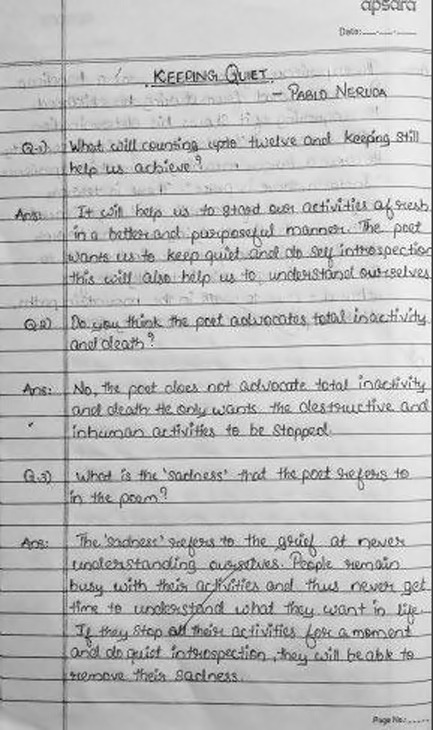 apsara
Date:
KEEPING QUIET
- PABLO NERUDA
Q.1) What will counting upto twelve and keeping still
help us achieve?
Ans: It will help us to start our activities afresh
in a better and purposeful manner. The poet
wants us to keep quiet and do self introspection
this will also help us to understand ourselves
Q.2) Do you think the poet advocates total inactivity
and death?
Ans: No, the poet does not advocate total inactivity
and death. He only wants the destructive and
inhuman activities to be stopped.
Q.3) What is the 'sadness' that the poet refers to
in the poem?
Ans: The 'sadness' refers to the grief at never
understanding ourselves. People remain
busy with their activities and thus never get
time to understand what they want in life.
If they stop all their activities for a moment
and do quist introspection, they will be able to
remove their sadness.
Page No.: